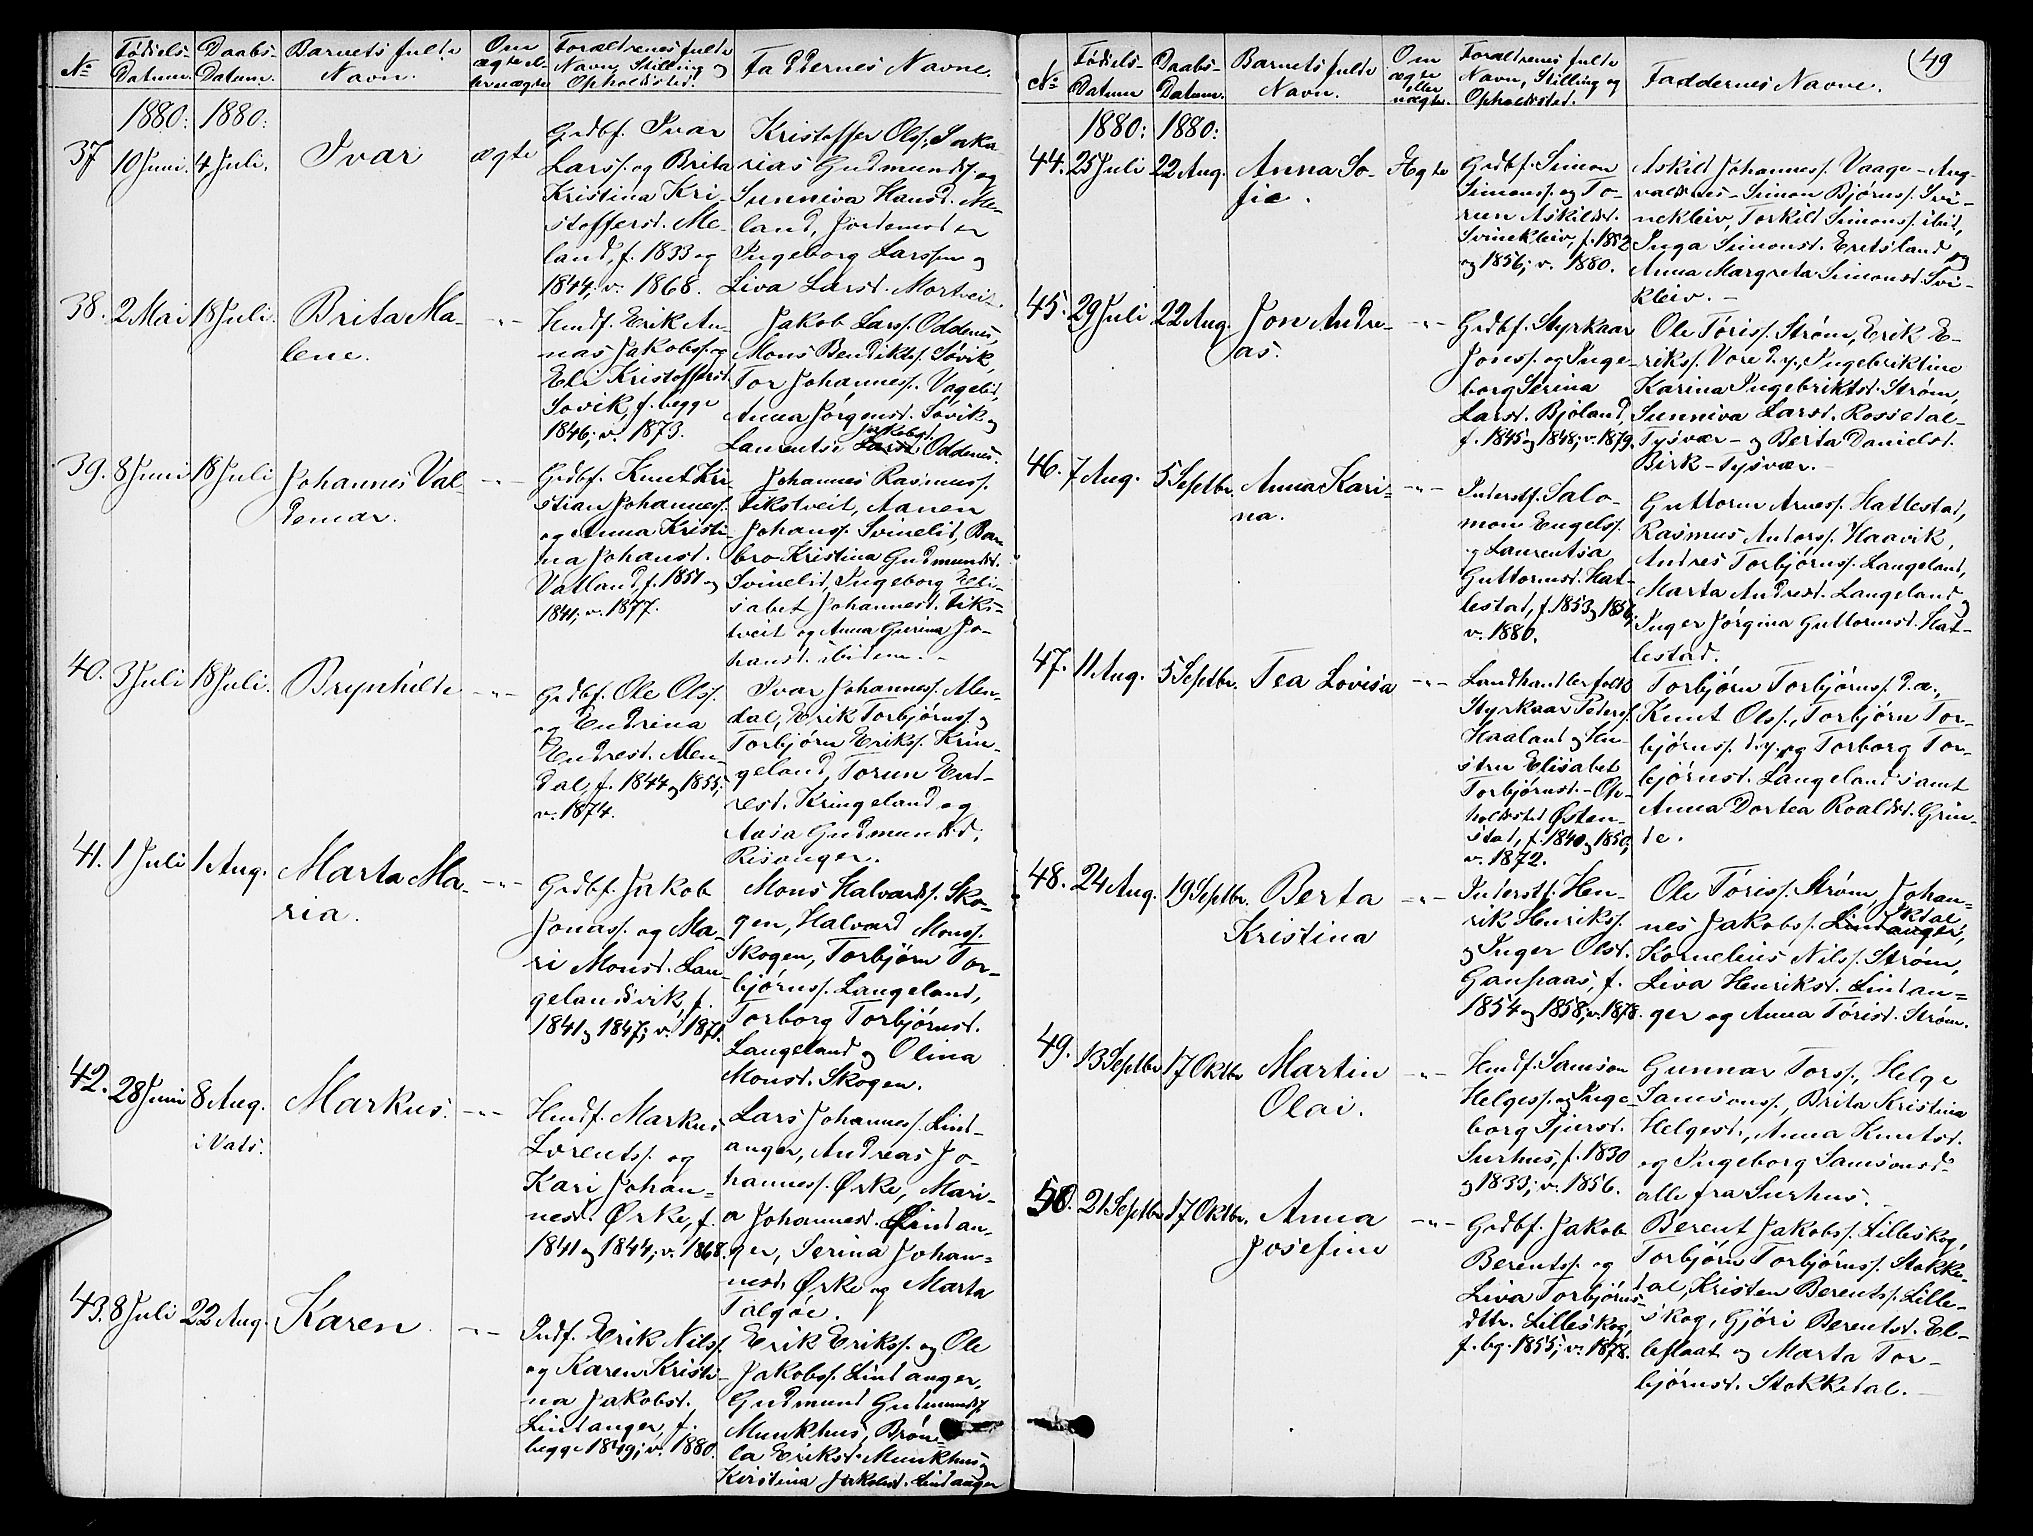 №
Fødsels-
Datum.
Daabs-
Datum.
Barnets fulde
Navn.
Om
ægte el.
uægte
Forældrenes fulde
Navn, Stilling og
Opholdssted.
Faddernes Navne.
1880: 1880:
37
10 Juni. 4 Juli.
Ivar
ægte
Grdbf. Ivar
Larss. og Brita
Kristina Kri-
stoffersd. Me-
land, f. 1833 og
1844; v. 1868.
Kristoffer Olss., Saka-
rias Gudmunds. og
Sunniva Hansd. Me-
land, Jordemod er
Ingeborg Larssen og
Liva Larsd. Mortveit.
38. 2 Mai 18 Juli.
Brita Ma-
lene.
-"-
Hmdf. Erik An-
nas Jakobss. og
Eli Kristoffersd.
Søvik, f. begge
1846; v. 1873.
Jakob Larss. Oddenes,
Mons Bendiktss. Søvik,
Tor Johanness. Vagelid,
Anna Jørgensd. Søvik og
Jakobsd.
Laurentse Larsd. Oddenes.
39. 8 Juni 18 Juli
Johannes Val-
demar.
-"-
Grdbf. Knut Kri-
stian Johanness.
og Anna Kristi-
na Johansd.
Vatland, f. 1851 og
1841; v. 1877.
Johannes Rasmuss.
Fikstveit, Aanen
Johanss. Svinelid, Bar-
bro Kristina Gudmundsd.
Svinelid, Ingeborg Eli-
sabet Johannesd. Fiks-
tveit og Anna Gurina Jo-
hansd. ibidem. -
40. 3 Juli 18 Juli.
Brynhilde
-"-
Grdbf. Ole Olss.
og Endrina
Endresd. Men-
dal, f. 1844 og 1855;
v. 1874.
Ivar Johanness. Men-
dal, Erik Torbjørnss. og
Torbjørn Erikss. Krin-
geland, Torun End-
resd. Kringeland og
Aasa Gudmundsd.
Risanger.
41. 1 Juli 1 Aug.
Marta Ma-
ria.
-"-
Grdbf. Jakob
Jonass. og Ma-
ri Monsd. Lan-
gelandsvik, f.
1841 og 1847; v. 1871.
Mons Halvards. Sko-
gen, Halvard Monss.
Skogen, Torbjørn Tor-
bjørnss. Langeland,
Torborg Torbjørnsd.
Langeland og Olina
Monsd. Skogen.
42. 28 Juni 8 Aug.
i Vats.
Markus.
-"-
Hmdf. Markus
Lorentss. og
Kari Johan-
nesd. Ørke, f.
1841 og 1844; v. 1868.
Lars Johanness. Lind-
anger, Andreas Jo-
hanness. Ørke, Mari-
a Johannesd. Lindan-
ger, Serina Johan-
nesd. Ørke og Marta
Talgøe.
43. 8 Juli 22 Aug.
Karen.
-"-
Indf. Erik Nilss.
og Karen Kristi-
na Jakobsd.
Lindanger, f.
begge 1849; v. 1880.
Erik Erikss. og Ole
Jakobss. Lindanger,
Gudmund Gudmunds.
Munkhus, Brøn-
la Eriksd. Munkhus og
Kirstina Jakobsd. Lindanger
49
№
Fødsels-
Datum
Daabs-
Datum.
Barnets fulde
Navn.
Om
ægte
eller
uægte.
Forældrenes fulde
Navn, Stilling og
Opholdssted.
Faddernes Navne.
1880: 1880:
44. 25 Juli 22 Aug.
Anna So-
fie.
Ægte
Grdbf. Simon
Simonss. og To-
run Askildsd.
Svinekleiv, f. 1852
og 1856; v. 1880.
Askild Johanness. Vaage - Aug-
valdsnes - Simon Bjørns. Svi-
nekleiv, Torkild Simonss. ibid,
Inga Simonsd. Eretsland og
Anna Margreta Simonsd. Svi-
kleiv. -
45. 29 Juli 22 Aug.
Jon Andre-
as.
-"-
Grdbf. Styrkaar
Jonss. og Inge-
borg Serina
Larsd. Bjoland,
f. 1845 og 1848; v. 1879.
Ole Toriss. Strøm, Erik E-
rikss. Vore d.y., Ingebriktine
Karina Ingebriktsd. Strøm,
Sunniva Larsd. Rossedal -
Tysvær - og Berta Danielsd.
Birk - Tysvær. -
46. 7 Aug. 5 Septbr.
Anna Kari-
na.
-"-
Inderstf. Salo-
mon Engelss.
og Laurentsa
Guttormsd. Hat-
lestad, f. 1853 og 1856;
v. 1880.
Guttorm Arness. Hatlestad,
Rasmus Anderss. Haavik,
Andres Torbjørnss. Langeland,
Marta Andresd. Langeland og
Inger Jørgina Guttormsd. Hat-
lestad.
47. 11 Aug. 5 Septbr.
Tea Lovisa
-"-
Landhandlerfolk
Styrkaar Peders.
Haaland og Hen-
stru Elisabet
Torbjørnsd. - Op-
holdssted Østen-
stad, f. 1840 og 1850;
v. 1872.
Torbjørn Torbjørnss. d.æ.,
Knut Olss., Torbjørn Tor-
bjørnss. d.y. og Torborg Tor-
bjørnsd. Langeland samt
Anna Dortea Roaldsd. Grin-
de.
48. 24 Aug. 19 Septbr.
Berta
Kristina
-"-
Inderstf. Hen-
rik Henrikss.
og Inger Olsd.
Ganpaas, f.
1854 og 1858; v. 1878.
Ole Toriss. Strøm, Johan-
Økdal,
nes Jakobss. Lindanger,
Kornelius Nilss. Strøm,
Liva Henriksd. Lindan-
ger og Anna Torisd. Strøm.
49. 13 Septbr 17 Oktbr
Martin
Olai.
-"-
Hmdf. Samson
Helgess. og Inge-
borg Sjursd.
Surhus, f. 1830
og 1833; v. 1856.
Gunnar Torss., Helge
Samsonss., Brita Kristina
Helgesd., Anna Knutsd.
og Ingeborg Samsonsd.
alle fra Surhus. -
50. 21 Septbr 17 Oktbr.
Anna
Josefine
-"-
Grdbf. Jakob
Berentss. og
Liva Torbjørns-
dttr. Lilleskog,
f. bg. 1855; v. 1878.
Berent Jakobss. Lilleskog,
Torbjørn Torbjørnss. Stokke-
dal, Kristen Berentss. Lille-
skog, Gjøri Berentsd. El-
leflaat og Marta Tor-
bjørnsd. Stokkedal. -